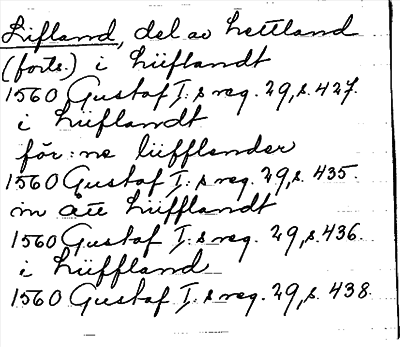 Lifland, del av Lettland
(forts.) i Lüflandt
1560 Gustaf I:s reg. 29, s. 427.
i Lüflandt
för:ne lüfflender
1560 Gustaf I:s reg. 29, s. 435.
in ått Lüfflandt
1560 Gustaf I:s reg. 29, s. 436.
i Lüffland
1560 Gustaf I:s reg. 29, s. 438.